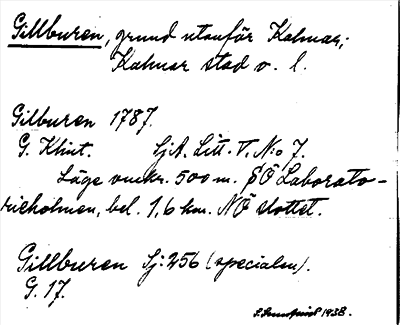 Gillburen, grund utanför Kalmar;
Kalmar stad o. l.
Gilburen 1787.
G. Klint. SjA. Litt. V. N:o 7.
Läge omkr. 500 m. SÖ Laborato-
rieholmen, bel. 1,6 km. NÖ slottet.
Gillburen Sj: 256 (specialen).
G. 17.
1938.